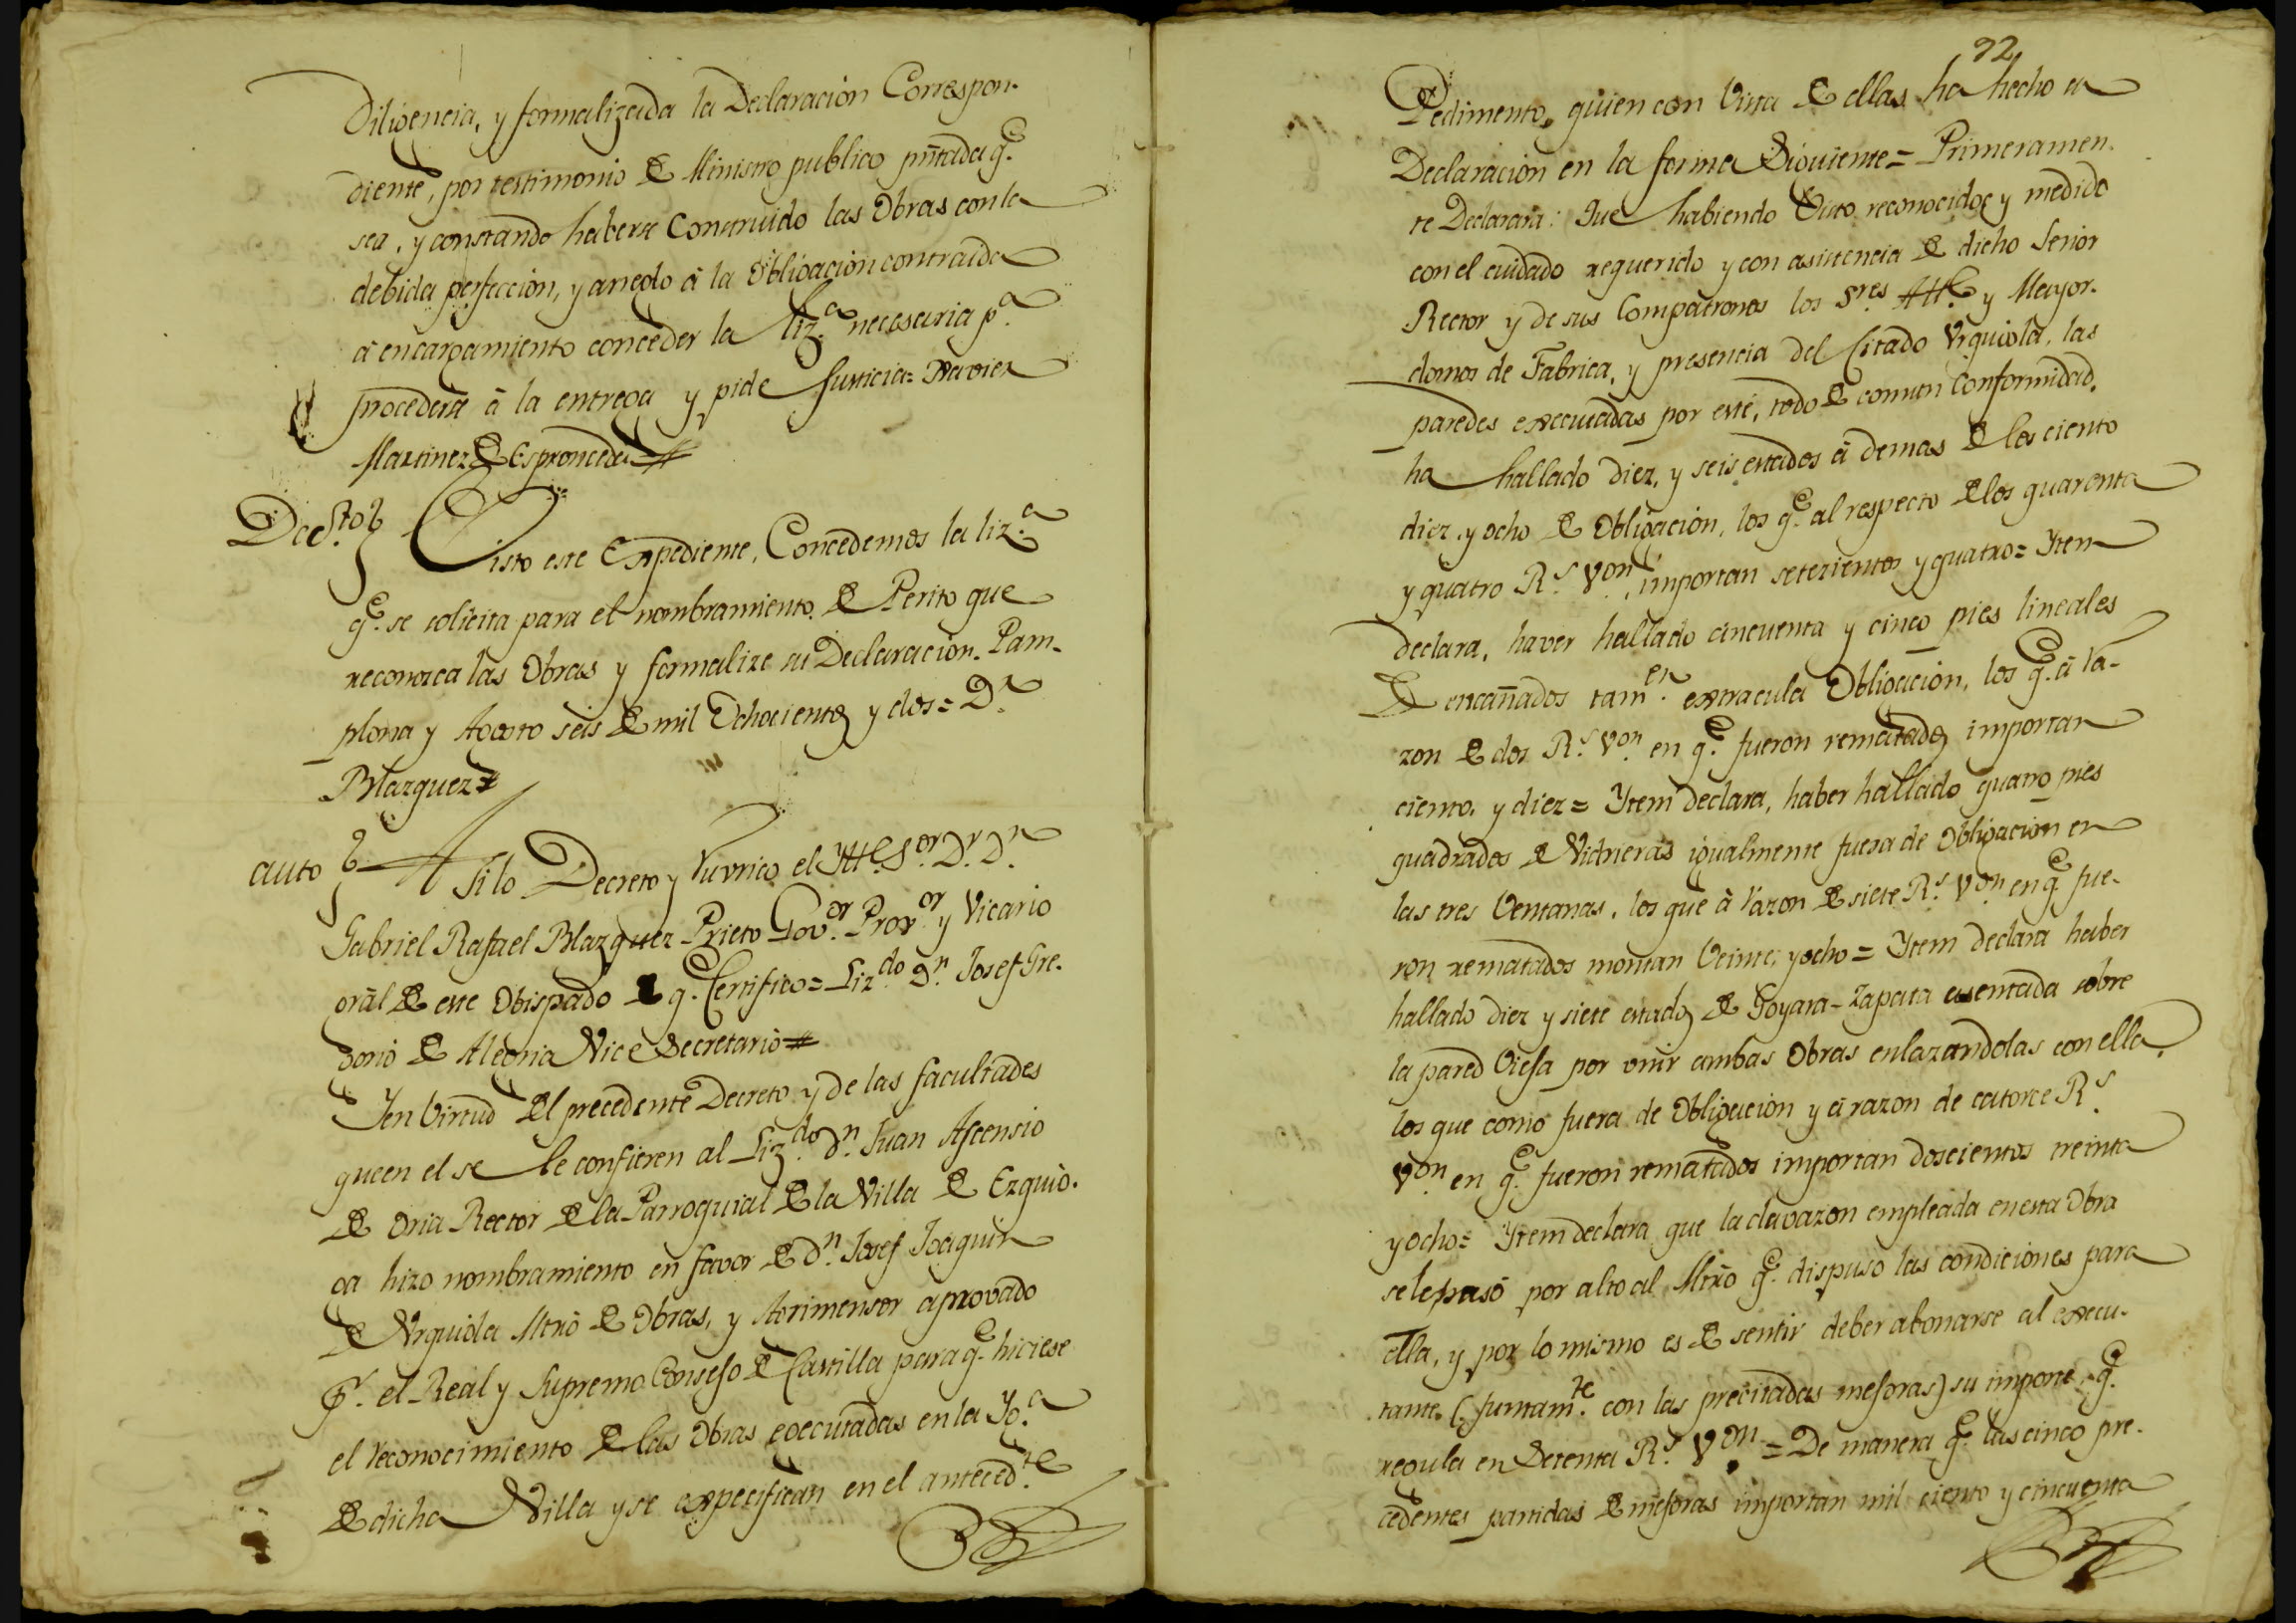 Diligencia, y formalizada la Declaracion Correspon-
diente, por testimonio de Ministro publico pñtada q.e
sea, y constando haberse Construido las Obras con la
debida perfeccion, y arreglo á la Obligacion contraida
á encargamiento conceder la liz.a necesaria p.a
procederse á la entrega y pide Justicia= Xavier
Martinez de Espronceda
Decr.to Visto este Expediente, Concedemos la liz.a
q.e se solicita para el nombramiento de Perito que
reconozca las Obras y formalize su Declaracion. Pam-
plona y Agosto seis de mil Ochocientos y dos= D.r
Blazquez
auto Asi lo Decreto y Ruvrico el Itt.e S.or D.r D.n
Gabriel Rafael Blazquez Prieto Gov.or Prov.or y Vicario
gral de este Obispado de q. Certifico= Liz.do D.n Josef Gre-
gorio de Alegria Vice Secretario
Y en Virtud del precedente Decreto y de las facultades
que en el se le confieren al Liz.do d.n Juan Ascensio
de Oria Rector de la Parroquial de la Villa de Ezquio-
ga hizo nombramiento en favor de d.n Josef Joaquin
de Urquiola Mtrõ de Obras, y Agrimensor aprovado
p.r el Real y Supremo Consejo de Castilla para q.e hiciese
el reconocimiento de las Obras egecutadas en la Yg.a
de dicha Villa y se expecifican en el anteced.te
92
Pedimento, quien con Vista de ellas ha hecho su
Declaracion en la forma Siguiente= Primeramen-
te Declarara: Que habiendo Visto reconocido y medido
con el cuidado requerido y con asistencia de dicho Señor
Rector y de sus Compatronos los S.res Alc.e y Mayor-
domos de Fabrica, y presencia del Citado Urquiola, las
paredes executadas por este, todo de comun Conformidad,
ha hallado diez, y seis estados á demas de los ciento
diez, y ocho de Obligacion, los q.e al respecto de los quarenta
y quatro R.s v.on importan setezientos y quatro= Ytem
declara, haver hallado cincuenta y cinco pies lineales
de encañados tam.en extra cula Obligacion, los q.e á ra-
zon de dos R.s v.on en q.e fueron rematados importan
ciento, y diez= Ytem declara, haber hallado quatro pies
quadrados de Vidrieras igualmente fuera de Obligacion en
las tres Ventanas, los que á razon de siete R.s v.on en q.e fue-
ron rematados montan Veinte, y ocho= Ytem declara haber
hallado diez y siete estados de Goyara-Zapata asentada sobre
la pared Vieja por unir ambas Obras enlazandolas con ella,
los que como fuera de Obligacion y á razon de catorce R.s
v.on en q.e fueron rematados importan doscientos treinta
y ocho= Ytem declara que la clavazon empleada en esta Obra
se le pasó por alto al Mtrõ q.e dispuso las condiciones para
ella, y por lo mismo es de sentir deber abonarse al execu-
tante (juntam.te con las precitadas mejoras) su importe, q.e
regula en Setenta R.s v.on = De manera q.e las cinco pre-
cedentes partidas de mejoras importan mil ciento y cincuenta